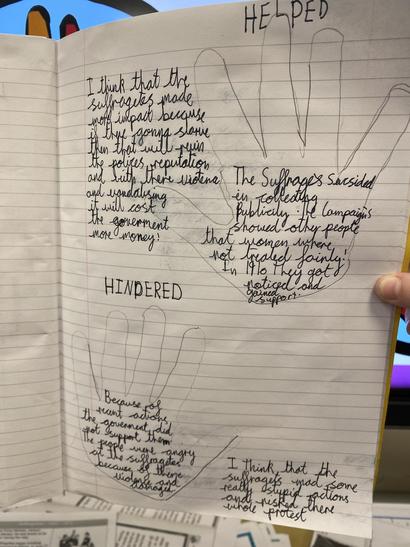 HELPED
I think that the
suffragets made
more impact because
if they gonna starve
then that will ruin
the polices reputation
and with there violence
and vandalising
it will cost
the goverment
more money!
The Suffrages Sucsided
in collecting
Publicity: The Campaigns
showed other people
that women where
not treated fairly!
In 1910 They got
noticed and
gained
support.
HINDERED
Because of
recent actions
the goverment did
not support them
The people were angry
at the suffragates
because of there
violence and
damage
I think that the
suffragets mad some
really stupid actions
and risked there
whole protest